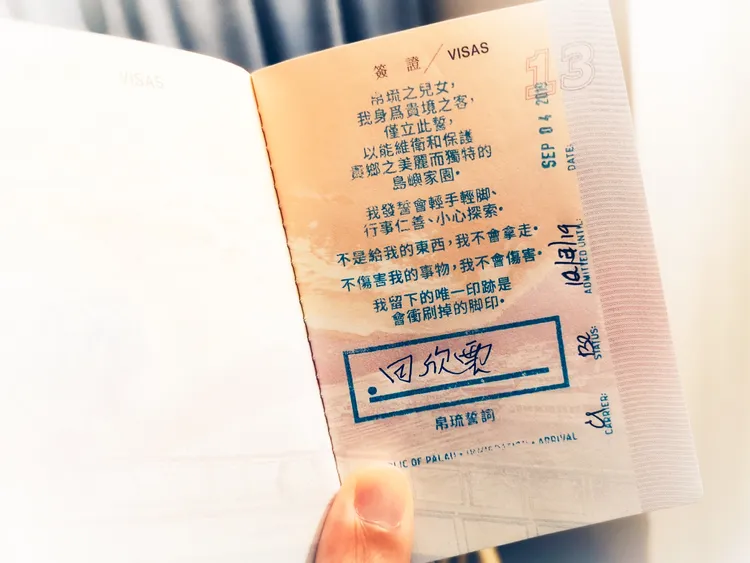 VISAS
簽 證 / VISAS
13
帛琉之兒女,
我身爲貴境之客,
僅立此誓,
以能維衛和保護
貴鄉之美麗而獨特的
島嶼家園。
我發誓會輕手輕脚、
行事仁善、小心探索。
不是給我的東西,我不會拿走。
不傷害我的事物,我不會傷害。
我留下的唯一印跡是
會衝刷掉的脚印。
帛琉誓詞
LIC OF PALAU • IMMIGRATION • ARRIVAL
SEP 04 2019
DATE:
ADMITTED UNTIL:
STATUS:
CARRIER: